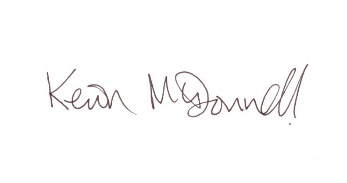 Kevin McDonnell